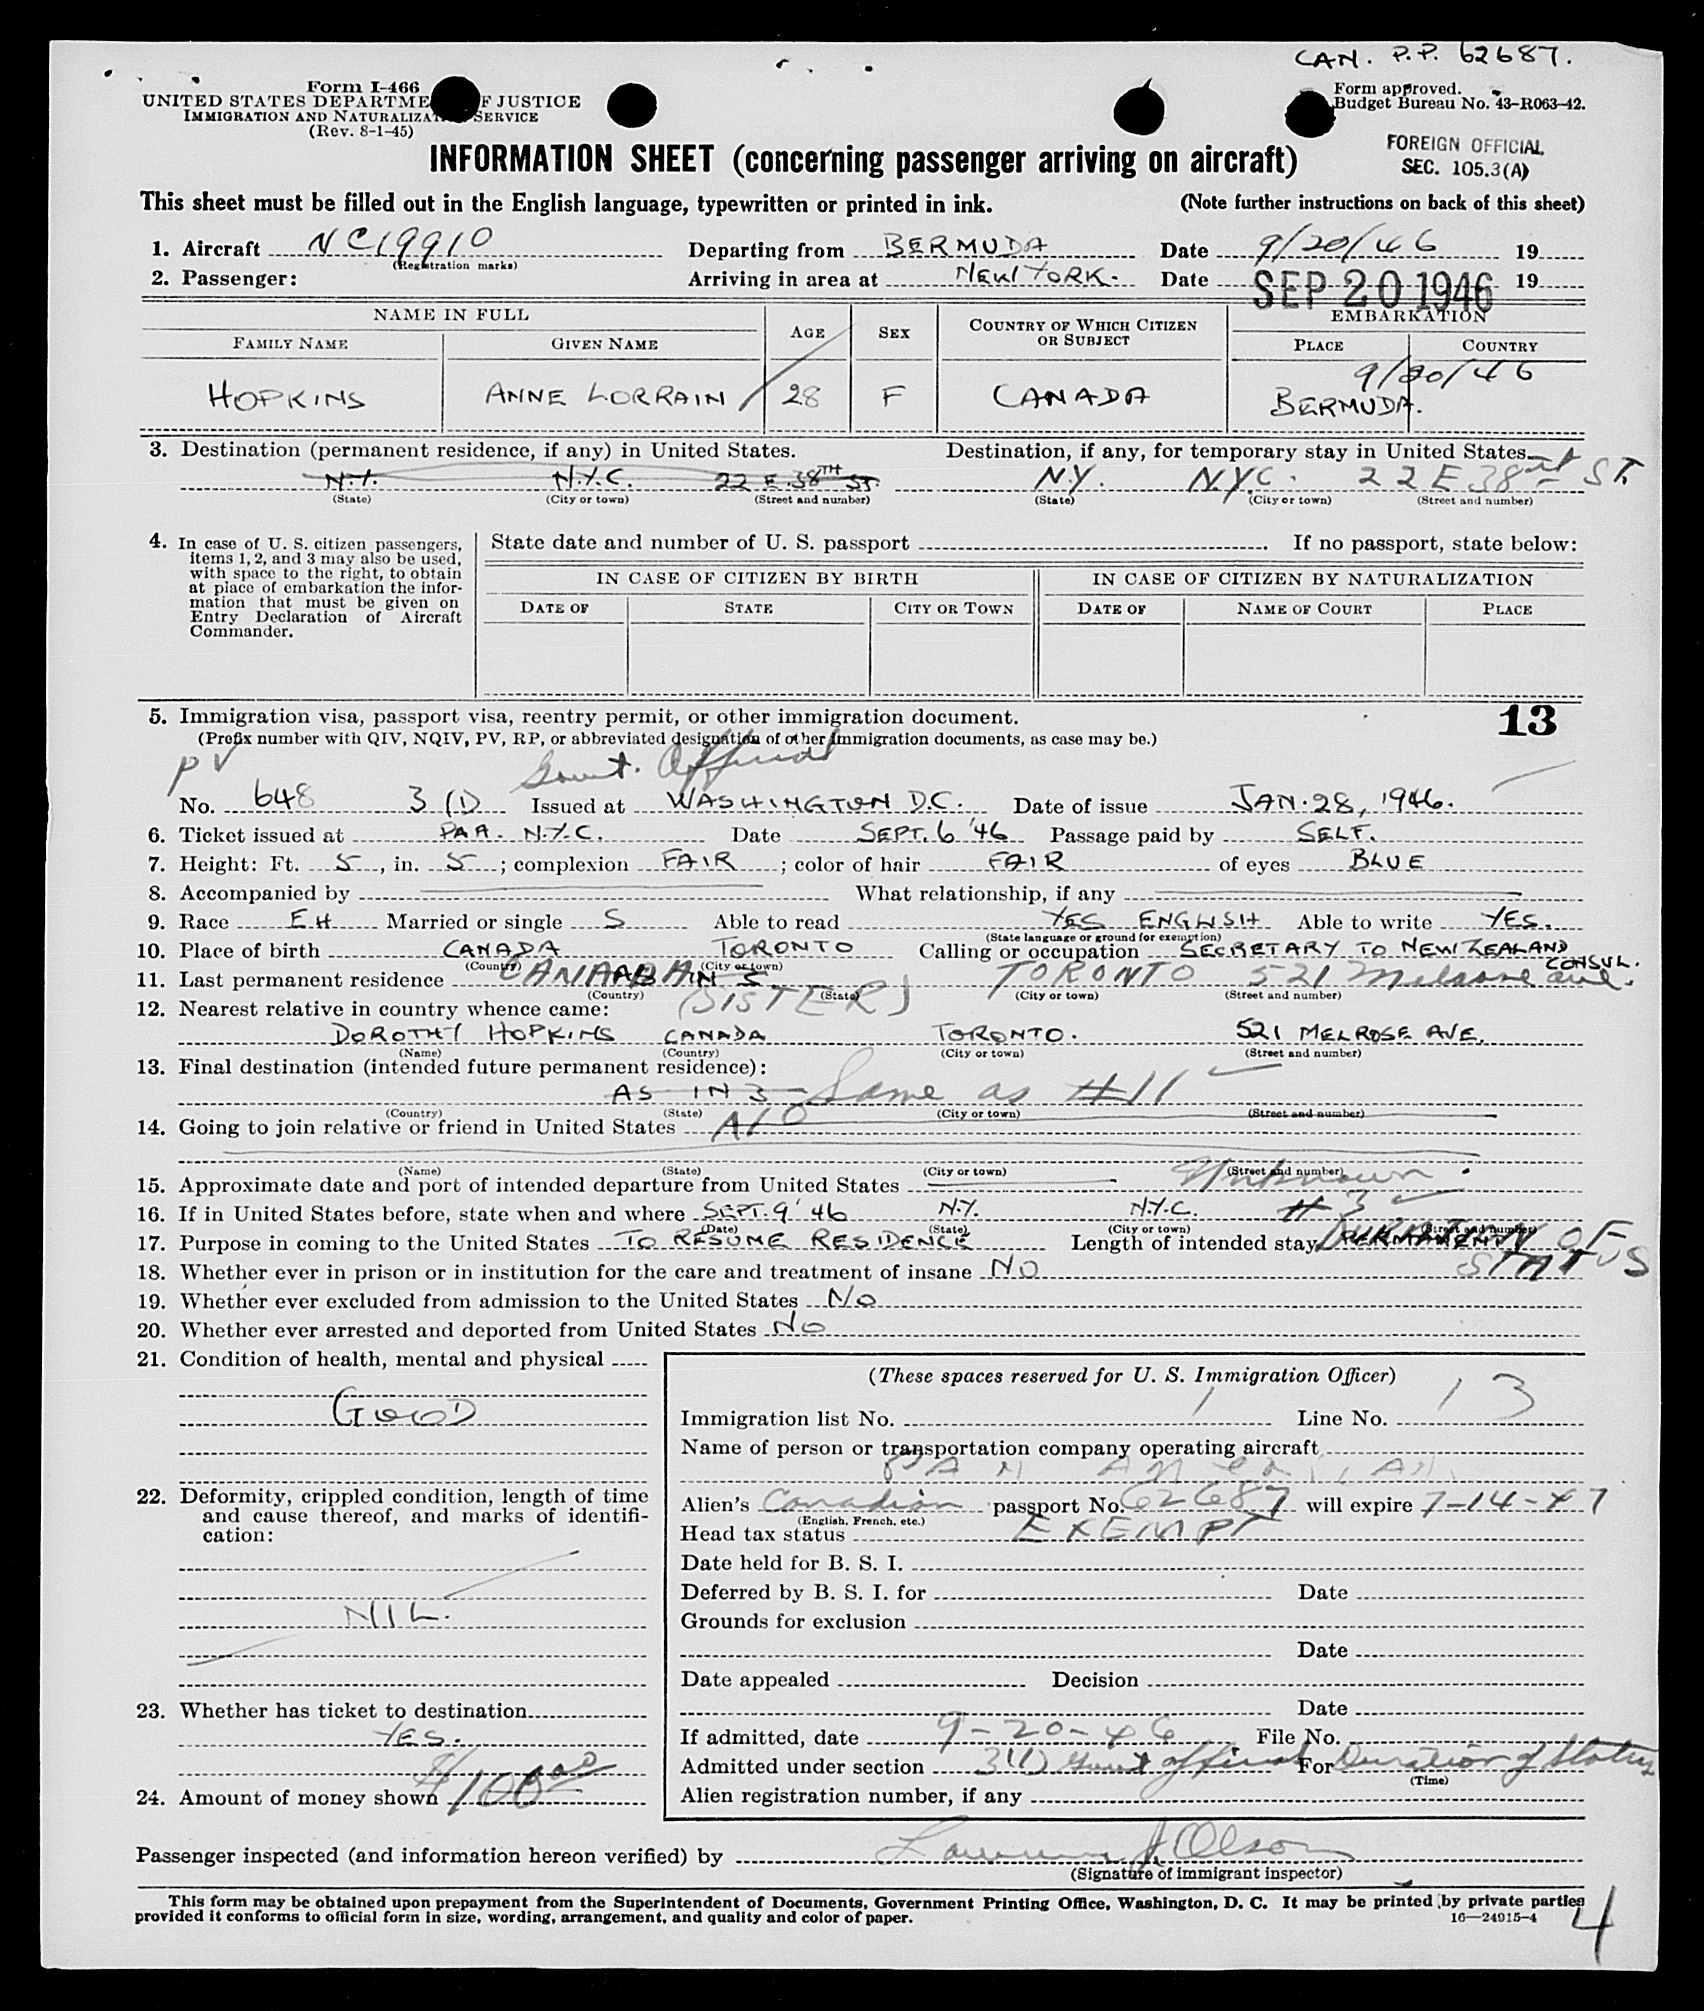 CAN. P.P. 62687.
Form I-466
UNITED STATES DEPARTME F JUSTICE
IMMIGRATION AND NATURALIZAT SERVICE
(Rev. 8-1-45)
Form approved.
Budget Bureau No. 43-R063-42.
FOREIGN OFFICIAL
SEC. 105.3(A)
INFORMATION SHEET (concerning passenger arriving on aircraft)
This sheet must be filled out in the English language, typewritten or printed in ink. (Note further instructions on back of this sheet)
1. Aircraft NC19910 Departing from BERMUDA Date 9/20/46 19
(Registration marks)
2. Passenger: Arriving in area at NEW YORK. Date SEP 20 1946 19
NAME IN FULL AGE SEX COUNTRY OF WHICH CITIZEN OR SUBJECT EMBARKATION
FAMILY NAME GIVEN NAME PLACE COUNTRY
9/20/46
HOPKINS ANNE LORRAIN 28 F CANADA BERMUDA.
3. Destination (permanent residence, if any) in United States. Destination, if any, for temporary stay in United States
N.Y. N.Y.C. 22 E. 38TH ST. N.Y. N.Y.C. 22 E 38 ST.
(State) (City or town) (Street and number) (State) (City or town) (Street and number)
4. In case of U. S. citizen passengers, items 1, 2, and 3 may also be used, with space to the right, to obtain at place of embarkation the information that must be given on Entry Declaration of Aircraft Commander.
State date and number of U. S. passport . If no passport, state below:
IN CASE OF CITIZEN BY BIRTH IN CASE OF CITIZEN BY NATURALIZATION
DATE OF STATE CITY OR TOWN DATE OF NAME OF COURT PLACE
5. Immigration visa, passport visa, reentry permit, or other immigration document. 13
(Prefix number with QIV, NQIV, PV, RP, or abbreviated designation of other immigration documents, as case may be.)
PV Govt. Official
No. 648 3 (1) Issued at WASHINGTON D.C. Date of issue JAN. 28, 1946.
6. Ticket issued at P.A.A. N.Y.C. Date SEPT. 6 '46 Passage paid by SELF.
7. Height: Ft. 5, in. 5; complexion FAIR; color of hair FAIR of eyes BLUE
8. Accompanied by What relationship, if any
9. Race EH Married or single S Able to read YES ENGLISH Able to write YES.
(State language or ground for exemption)
10. Place of birth CANADA TORONTO Calling or occupation SECRETARY TO NEW ZEALAND CONSUL.
(Country) (City or town)
11. Last permanent residence CANADA AS IN 3 TORONTO 521 Melrose ave.
(Country) (State) (City or town) (Street and number)
12. Nearest relative in country whence came: (SISTER)
DOROTHY HOPKINS CANADA TORONTO. 521 MELROSE AVE.
(Name) (Country) (City or town) (Street and number)
13. Final destination (intended future permanent residence):
AS IN 3 Same as #11
(Country) (State) (City or town) (Street and number)
14. Going to join relative or friend in United States NO
(Name) (State) (City or town) (Street and number)
15. Approximate date and port of intended departure from United States Unknown.
16. If in United States before, state when and where SEPT. 9 '46 N.Y. N.Y.C. #3
(Date) (State) (City or town) (Street and number)
17. Purpose in coming to the United States TO RESUME RESIDENCE Length of intended stay PERMANENT DURATION OF STATUS
18. Whether ever in prison or in institution for the care and treatment of insane NO
19. Whether ever excluded from admission to the United States NO
20. Whether ever arrested and deported from United States NO
21. Condition of health, mental and physical
GOOD
22. Deformity, crippled condition, length of time and cause thereof, and marks of identification:
NIL.
23. Whether has ticket to destination
YES.
24. Amount of money shown $100.00
(These spaces reserved for U. S. Immigration Officer)
Immigration list No. 1 Line No. 13
Name of person or transportation company operating aircraft
PAN AMERICAN
Alien's Canadian passport No. 62687 will expire 7-14-47
(English, French, etc.)
Head tax status EXEMPT
Date held for B. S. I.
Deferred by B. S. I. for Date
Grounds for exclusion
Date
Date appealed Decision
Date
If admitted, date 9-20-46 File No.
Admitted under section 3(1) Govt official For Duration of Status
(Time)
Alien registration number, if any
Passenger inspected (and information hereon verified) by J. Olson
(Signature of immigrant inspector)
This form may be obtained upon prepayment from the Superintendent of Documents, Government Printing Office, Washington, D. C. It may be printed by private parties
provided it conforms to official form in size, wording, arrangement, and quality and color of paper. 16—24915-4
4